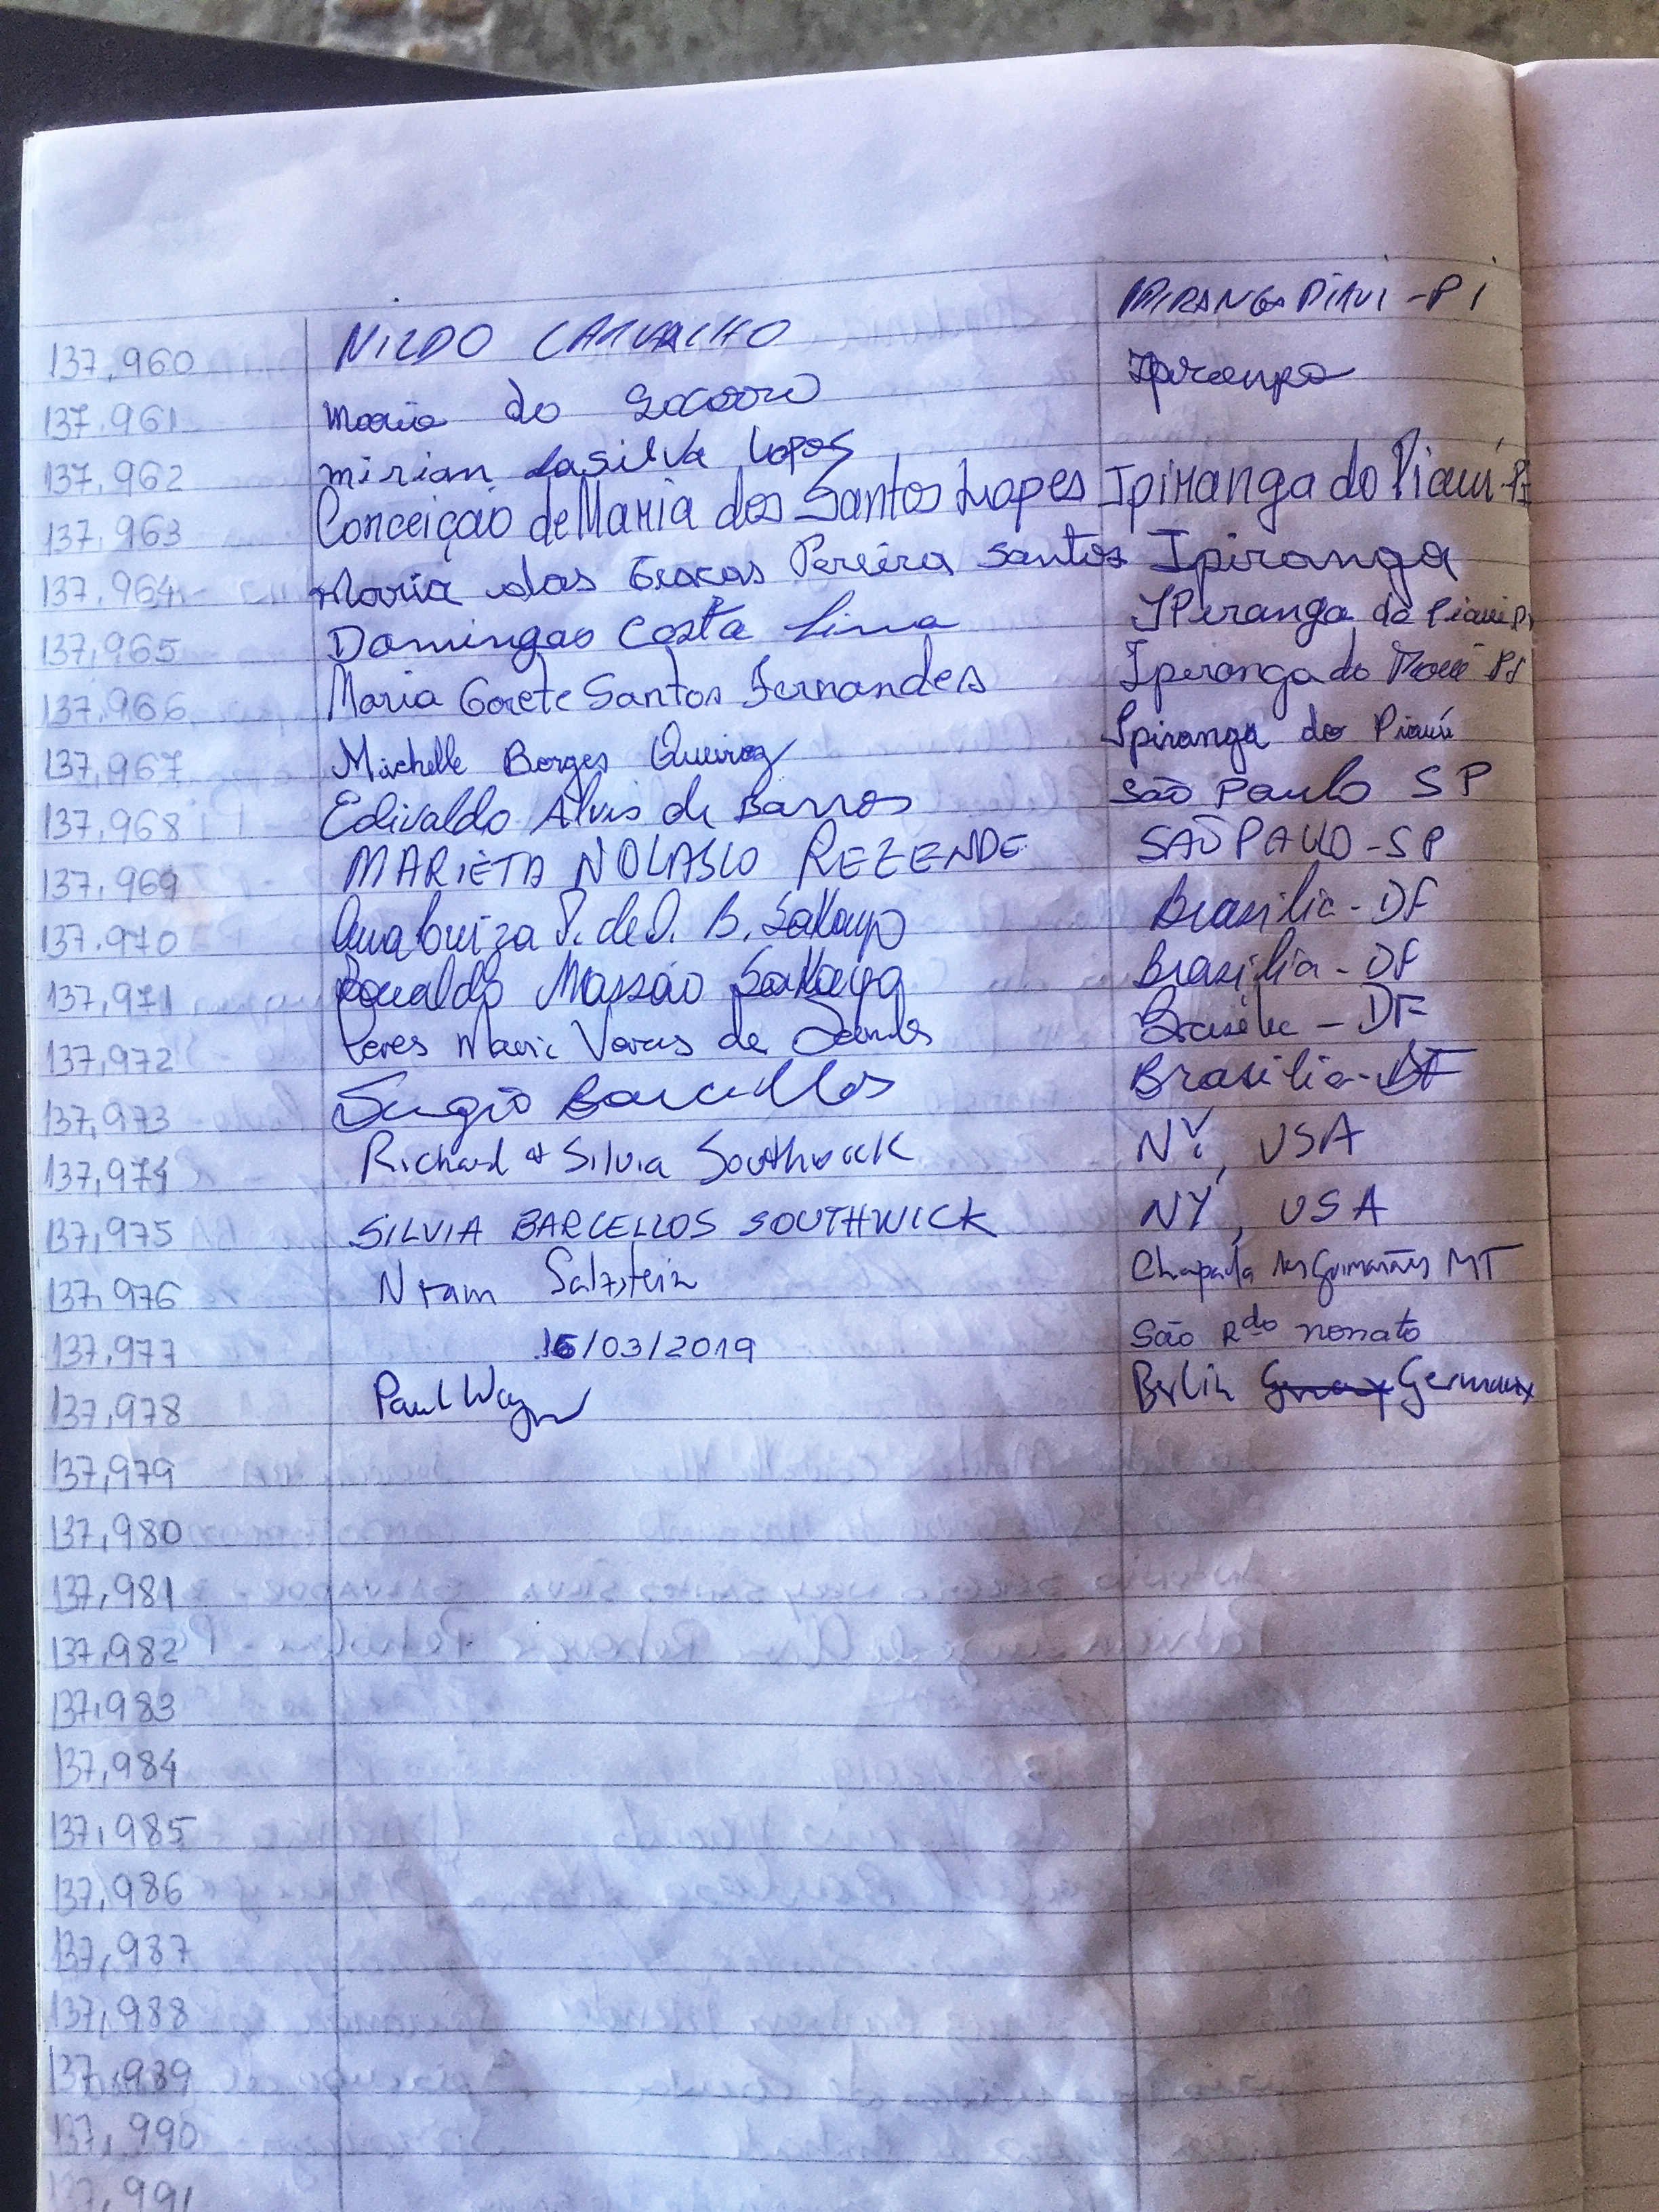 137.960 NILDO CARVALHO IPIRANGA PIAUI - PI
137.961 Maria do Socorro Ipiranga
137.962 mirian dasilva lopes
137.963 Conceição de Maria dos Santos Lopes Ipiranga do Piauí-PI
137.964 Maria das Graças Pereira Santos Ipiranga
137,965 Domingas Costa Lima IPiranga do Piaui Pi
137,966 Maria Gorete Santos Fernandes Ipiranga do Piauí PI
137,967 Michelle Borges Queiroz Ipiranga do Piauí
137,968 Edivaldo Alves de Barros São Paulo SP
137,969 MARIETA NOLASCO REZENDE SÃO PAULO - SP
137.970 Ana Luiza P. de O. B. Sakayo Brasilia - DF
137,971 Ronaldo Massão Sakayo Brasilia - DF
137,972 Maria de Brasilia - DF
137,973 Sergio Barcellos Brasilia - DF
137,974 Richard & Silvia Southwick NY, USA
137,975 SILVIA BARCELLOS SOUTHWICK NY, USA
137,976 Salzstein Chapada dos Guimarães MT
137,977 16/03/2019 São Rdo nonato
137,978 Paul Berlin Germany
137,979
137,980
137,981
137,982
137,983
137,984
137,985
137,986
137,987
137,988
137,989
137,990
137,991